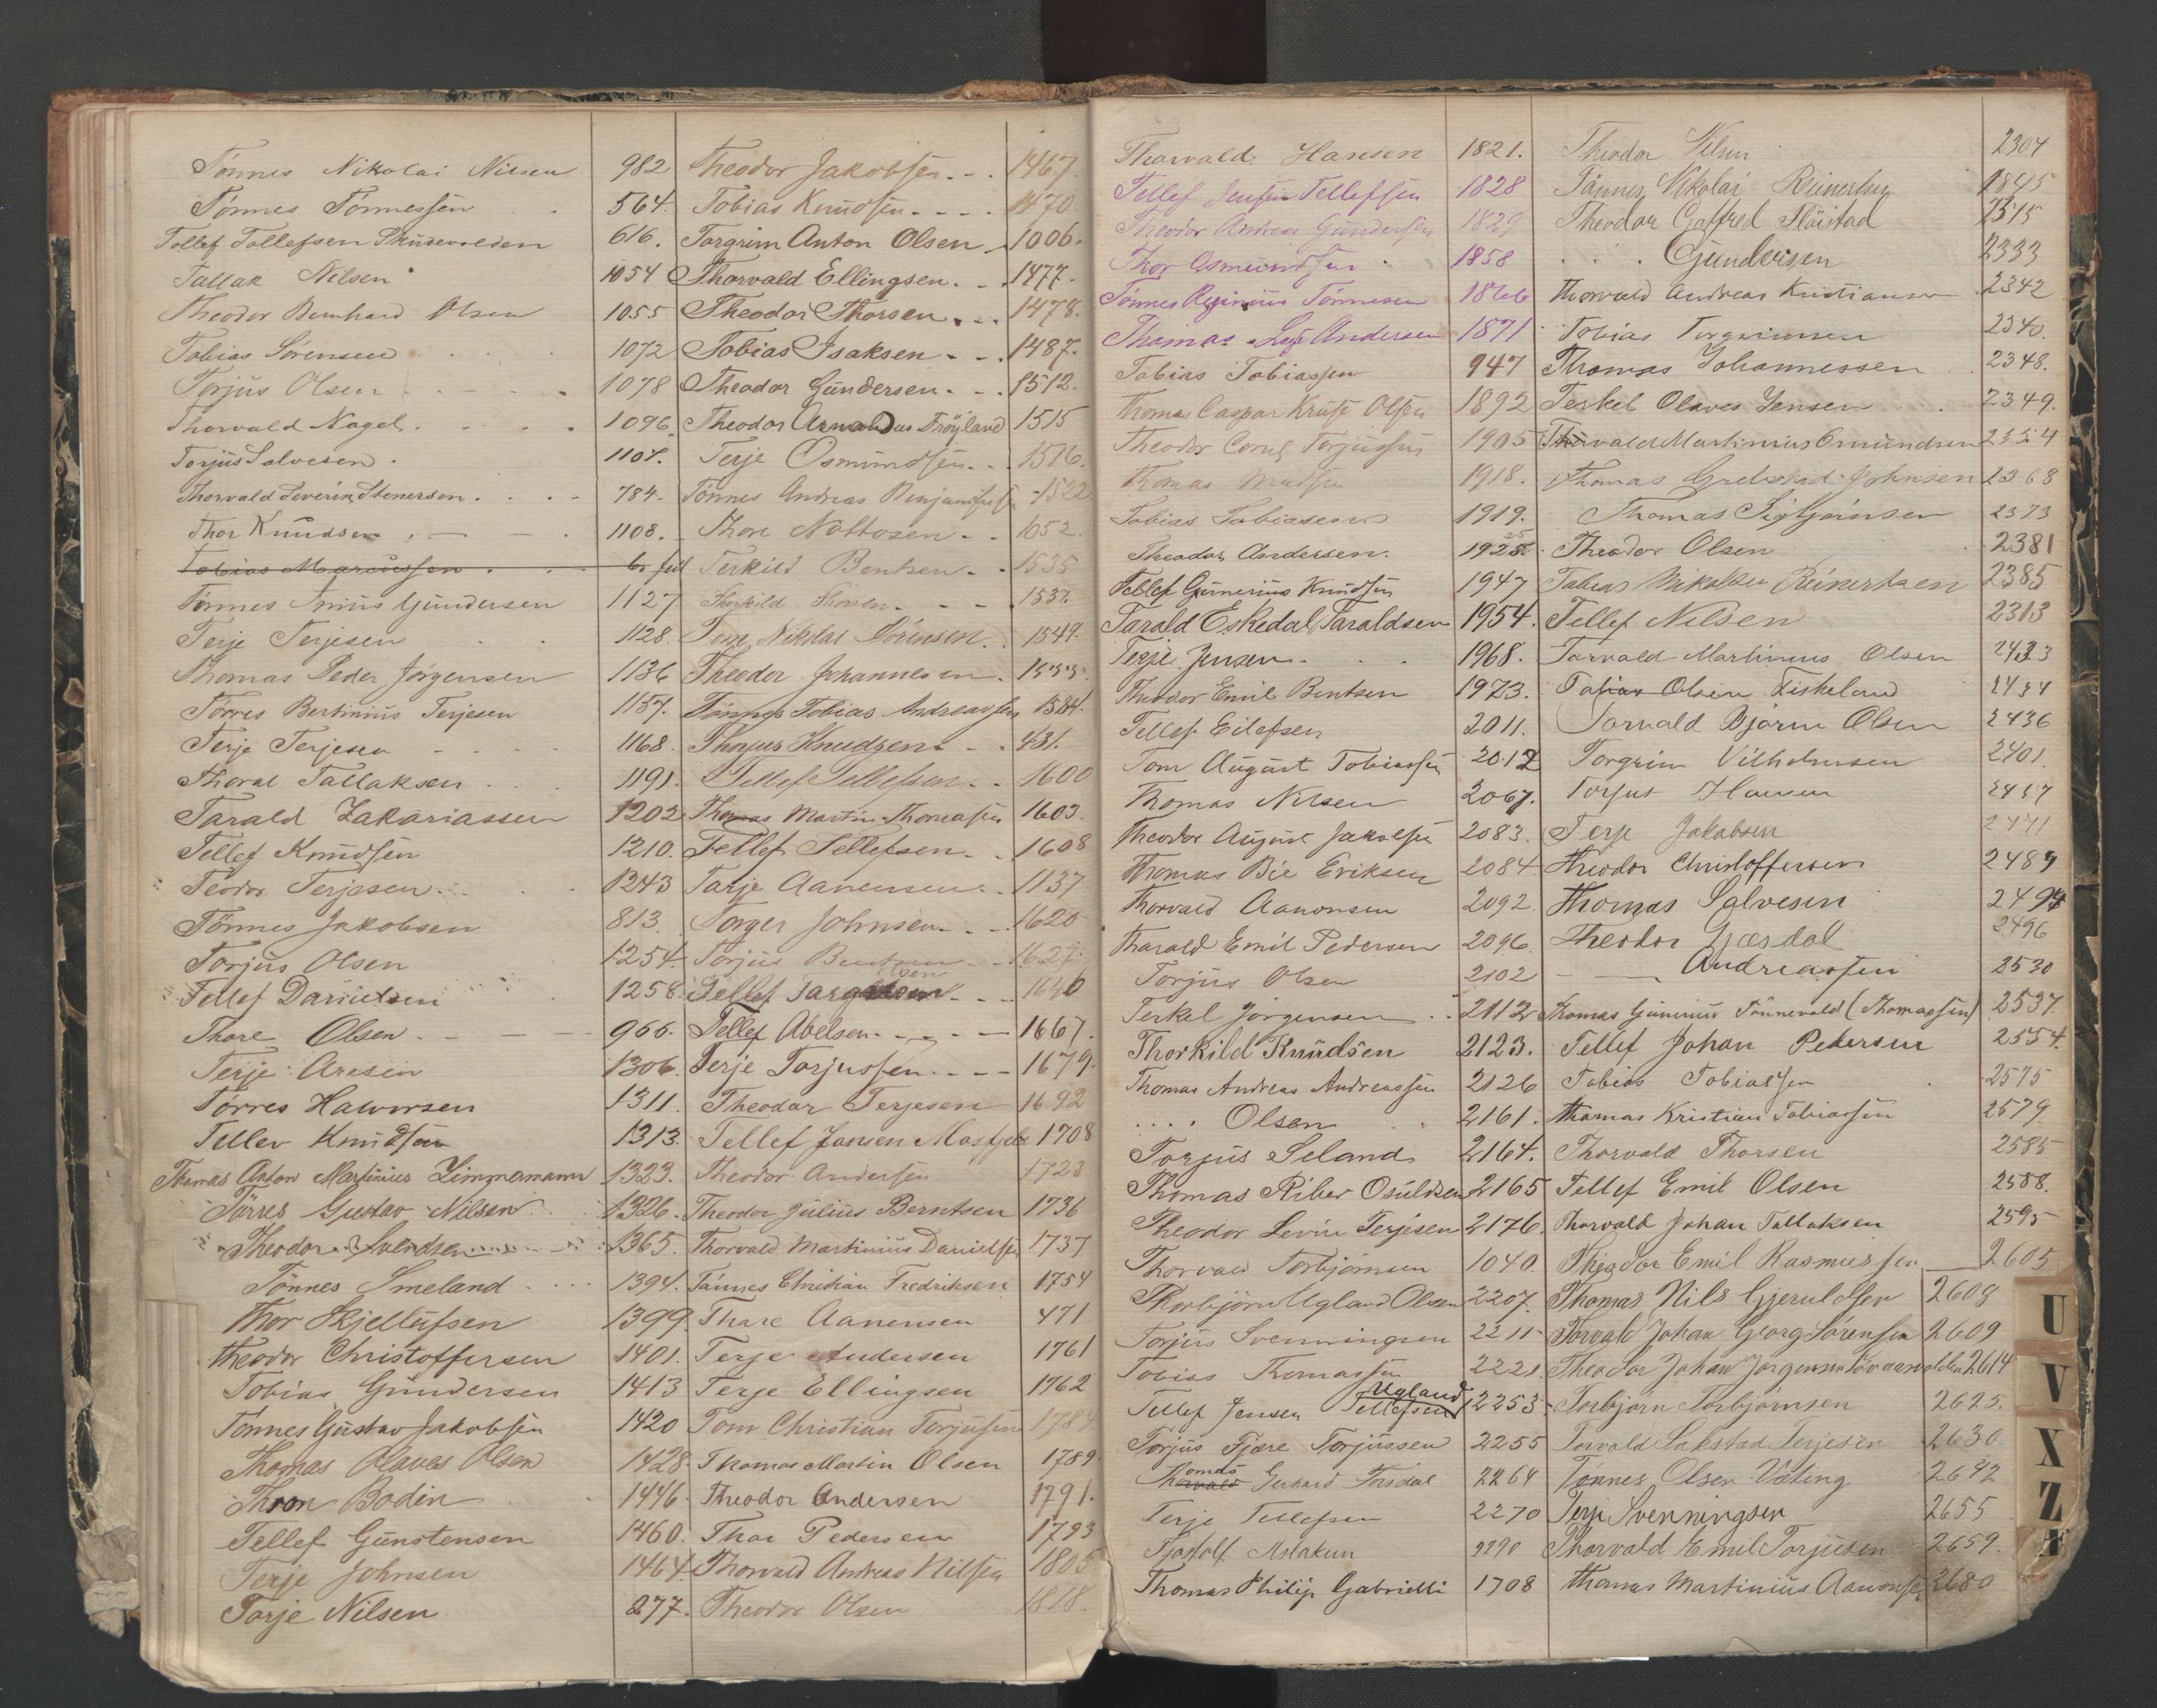 Tønnes Nikolai Nilsen 982
Tønnes Tønnessen 564.
Tollef Tollefsen 616.
Tallak Nilsen 1054
Theodor Bernhard Olsen 1055
Tobias Sørensen 1072
Torjus Olsen 1078
Thorvald Nagel. 1096
Torjus Salvesen. 1107.
Thorvald Severin Stenersen. 784.
Thor Knudsen 1108.
Tobias Marcussen
Tønnes Gundersen 1127
Terje Terjesen 1128.
Thomas Peder Jörgensen 1136
Törres Bertinius Terjesen 1157.
Terje Terjesen 1168.
Thoral Tallaksen 1191.
Tarald Zakariassen 1202
Tellef Knudsen 1210.
Teodor Terjesen 1243
Tønnes Jakobsen 813.
Torjus Olsen 1254.
Tellef Danielsen 1258.
Thore Olsen 966.
Terje Aresen 1306.
Törres Halvorsen 1311.
Tellev Knudsen 1313.
Thomas Anton Martinius Zimmamann 1323.
Törres Gustav Nilsen 1326.
Theodor Svendsen 1365.
Tønnes Smeland 1394.
Thor Skjellufsen 1399.
Theodor Christoffersen 1401.
Tobias Gundersen 1413
Tønnes Gustav Jakobsen 1420
Thomas Olaves Olsen 1428
Thron Bodin 1446
Tellef Gunstensen 1460.
Terje Johnsen 1464
Tarje Nilsen 277.
Theodor Jakobsen 1467.
Tobias Knudsen 1470
Torgrim Anton Olsen 1006.
Thorvald Ellingsen 1477.
Theodor Thorsen 1478.
Tobias Isaksen 1487.
Theodor Gundersen 1512.
Theodor Arnoldus Fröyland 1515
Terje Osmundsen 1516.
Tønnes Andreas Benjaminsen 1522
Thore Nottosen 1052.
Terkild Bentsen 1535
Thorkild Thorsen 1537.
Tom Nikolai Sörensen. 1549.
Theodor Johannesen. 1555.
Tønnes Tobias Andreassen 1584.
Thorjus Knudsen 431.
Tellef Tellefsen 1600
Thomas Martin Thomasen 1603.
Tellef Tellefsen 1608
Tarje Aanensen 1137
Torger Johnsen 1620
Torjus Bentsen 1627.
Tellef Olsen 1640
Tellef Abelsen 1667.
Terje Torjussen 1679.
Theodor Terjesen 1692
Tellef Jansen 1708
Theodor Andersen 1723
Theodor Julius Berntsen 1736
Thorvald Martinius Danielsen 1737
Tønnes Christian Fredriksen 1754
Thore Aanensen 471
Terje Andersen 1761
Terje Ellingsen 1762
Tom Christian Torjusen 1784
Thomas Martin Olsen 1789
Theodor Andersen 1791.
Thor Pedersen 1793
Thorvald Andreas Nilsen 1805
Theodor Olsen 1818.
Thorvald Hansen 1821.
Tellef Jensen Tellefsen 1828
Theodor Andreas Gundersen 1829
Thor Osmundsen 1858
Tønnes Reginius Tønnesen 1866
Thomas Andersen 1871
Tobias Tobiassen 947
Thomas Caspar Kruse Olsen 1892
Theodor Cornel Torjussen 1905
Thomas Madsen 1918.
Tobias Tobiasen 1919.
Theodor Andersen. 1925.
Tellef Gunerius Knudsen 1947
Tarald Eskedal Taraldsen 1954.
Terje Jensen 1968.
Theodor Emil Bentsen 1973.
Tellef Eilefsen 2011.
Tom August Tobiassen 2012
Thomas Nilsen 2067.
Theodor August Jakobsen 2083.
Thomas Bie Eriksen 2084
Thorvald Aanonsen 2092
Tharald Emil Pedersen 2096.
Torjus Olsen 2102
Terkel Jörgensen 2112
Thorkild Knudsen 2123.
Thomas Andreas Andreassen 2126
.... Olsen 2161.
Torjus Seland 2164.
Thomas Riber Osuldsen 2165
Theodor Levin Terjesen 2176.
Thorvald Torbjörnsen 1040.
Thorbjörn Ugland Olsen 2207.
Torjus Svenningsen 2211
Tobias Thomassen 2221
Tellef Jensen Tellefsen Ugland 2253
Torjus Tjære Torjussen 2255
Thomas Gerhard Torsdal 2264
Terje Tellefsen 2270
Tjostolf Aslaksen 2290
Thomas Philip Gabrielli 1708
Theodor Nilsen 2304
Tønnes Nikolai Reinertsen 1845
Theodor Gotfred Flöistad 2315
. . . Gundersen 2333
Thorvald Andreas Kristiansen 2342
Tobias Torgrimsen 2340.
Thomas Johannessen 2348.
Terkel Olaves Jensen 2349.
Thorvald Martinius Omundsen 2354
Thomas Johnsen 2368
Thomas Sigbjörnsen 2373
Theodor Olsen 2381
Tobias Nikolai Reinertsen 2385
Tellef Nilsen 2313
Torvald Martinius Olsen 2433
Tobias Olsen Fiskeland 2434
Torvald Bjarne Olsen 2436
Torgrim Vilhelmsen 2401.
Torjus Hansen 2437
Terje Jakobsen 2471
Theodor Christoffersen 2489
Thomas Salvesen 2494
Theodor Gjesdal 2496
— — Andreassen 2530
Thomas Gunerius Tønnevold (Thomassen) 2537.
Tellef Johan Pedersen 2554.
Tobias Tobiassen 2575
Thomas Kristian Tobiassen 2579.
Thorvald Thorsen 2585
Tellef Emil Olsen 2588.
Thorvald Johan Tallaksen 2595
Theodor Emil Rasmussen 2605
Thomas Nils Gjeruldsen 2608
Torvald Johan Georg Sörensen 2609
Theodor Johan Jörgensen 2614
Torbjörn Torbjörnsen 2625.
Torvald Lakstad Terjesen 2630
Tønnes Olsen Væting 2642
Terje Svenningsen 2655
Thorvald Emil Torjusen 2659.
Thomas Martinius Aanonsen 2680
U
V
X
Z
Æ